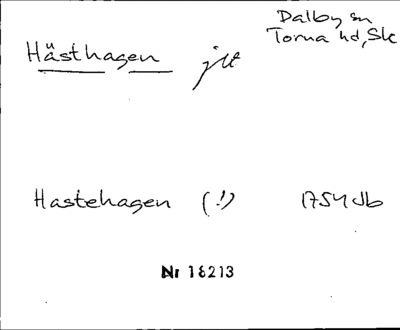 Dalby sn
Torna hd, Sk
Hästhagen jlt
Hastehagen (!) 1754 Jb
Nr 16213